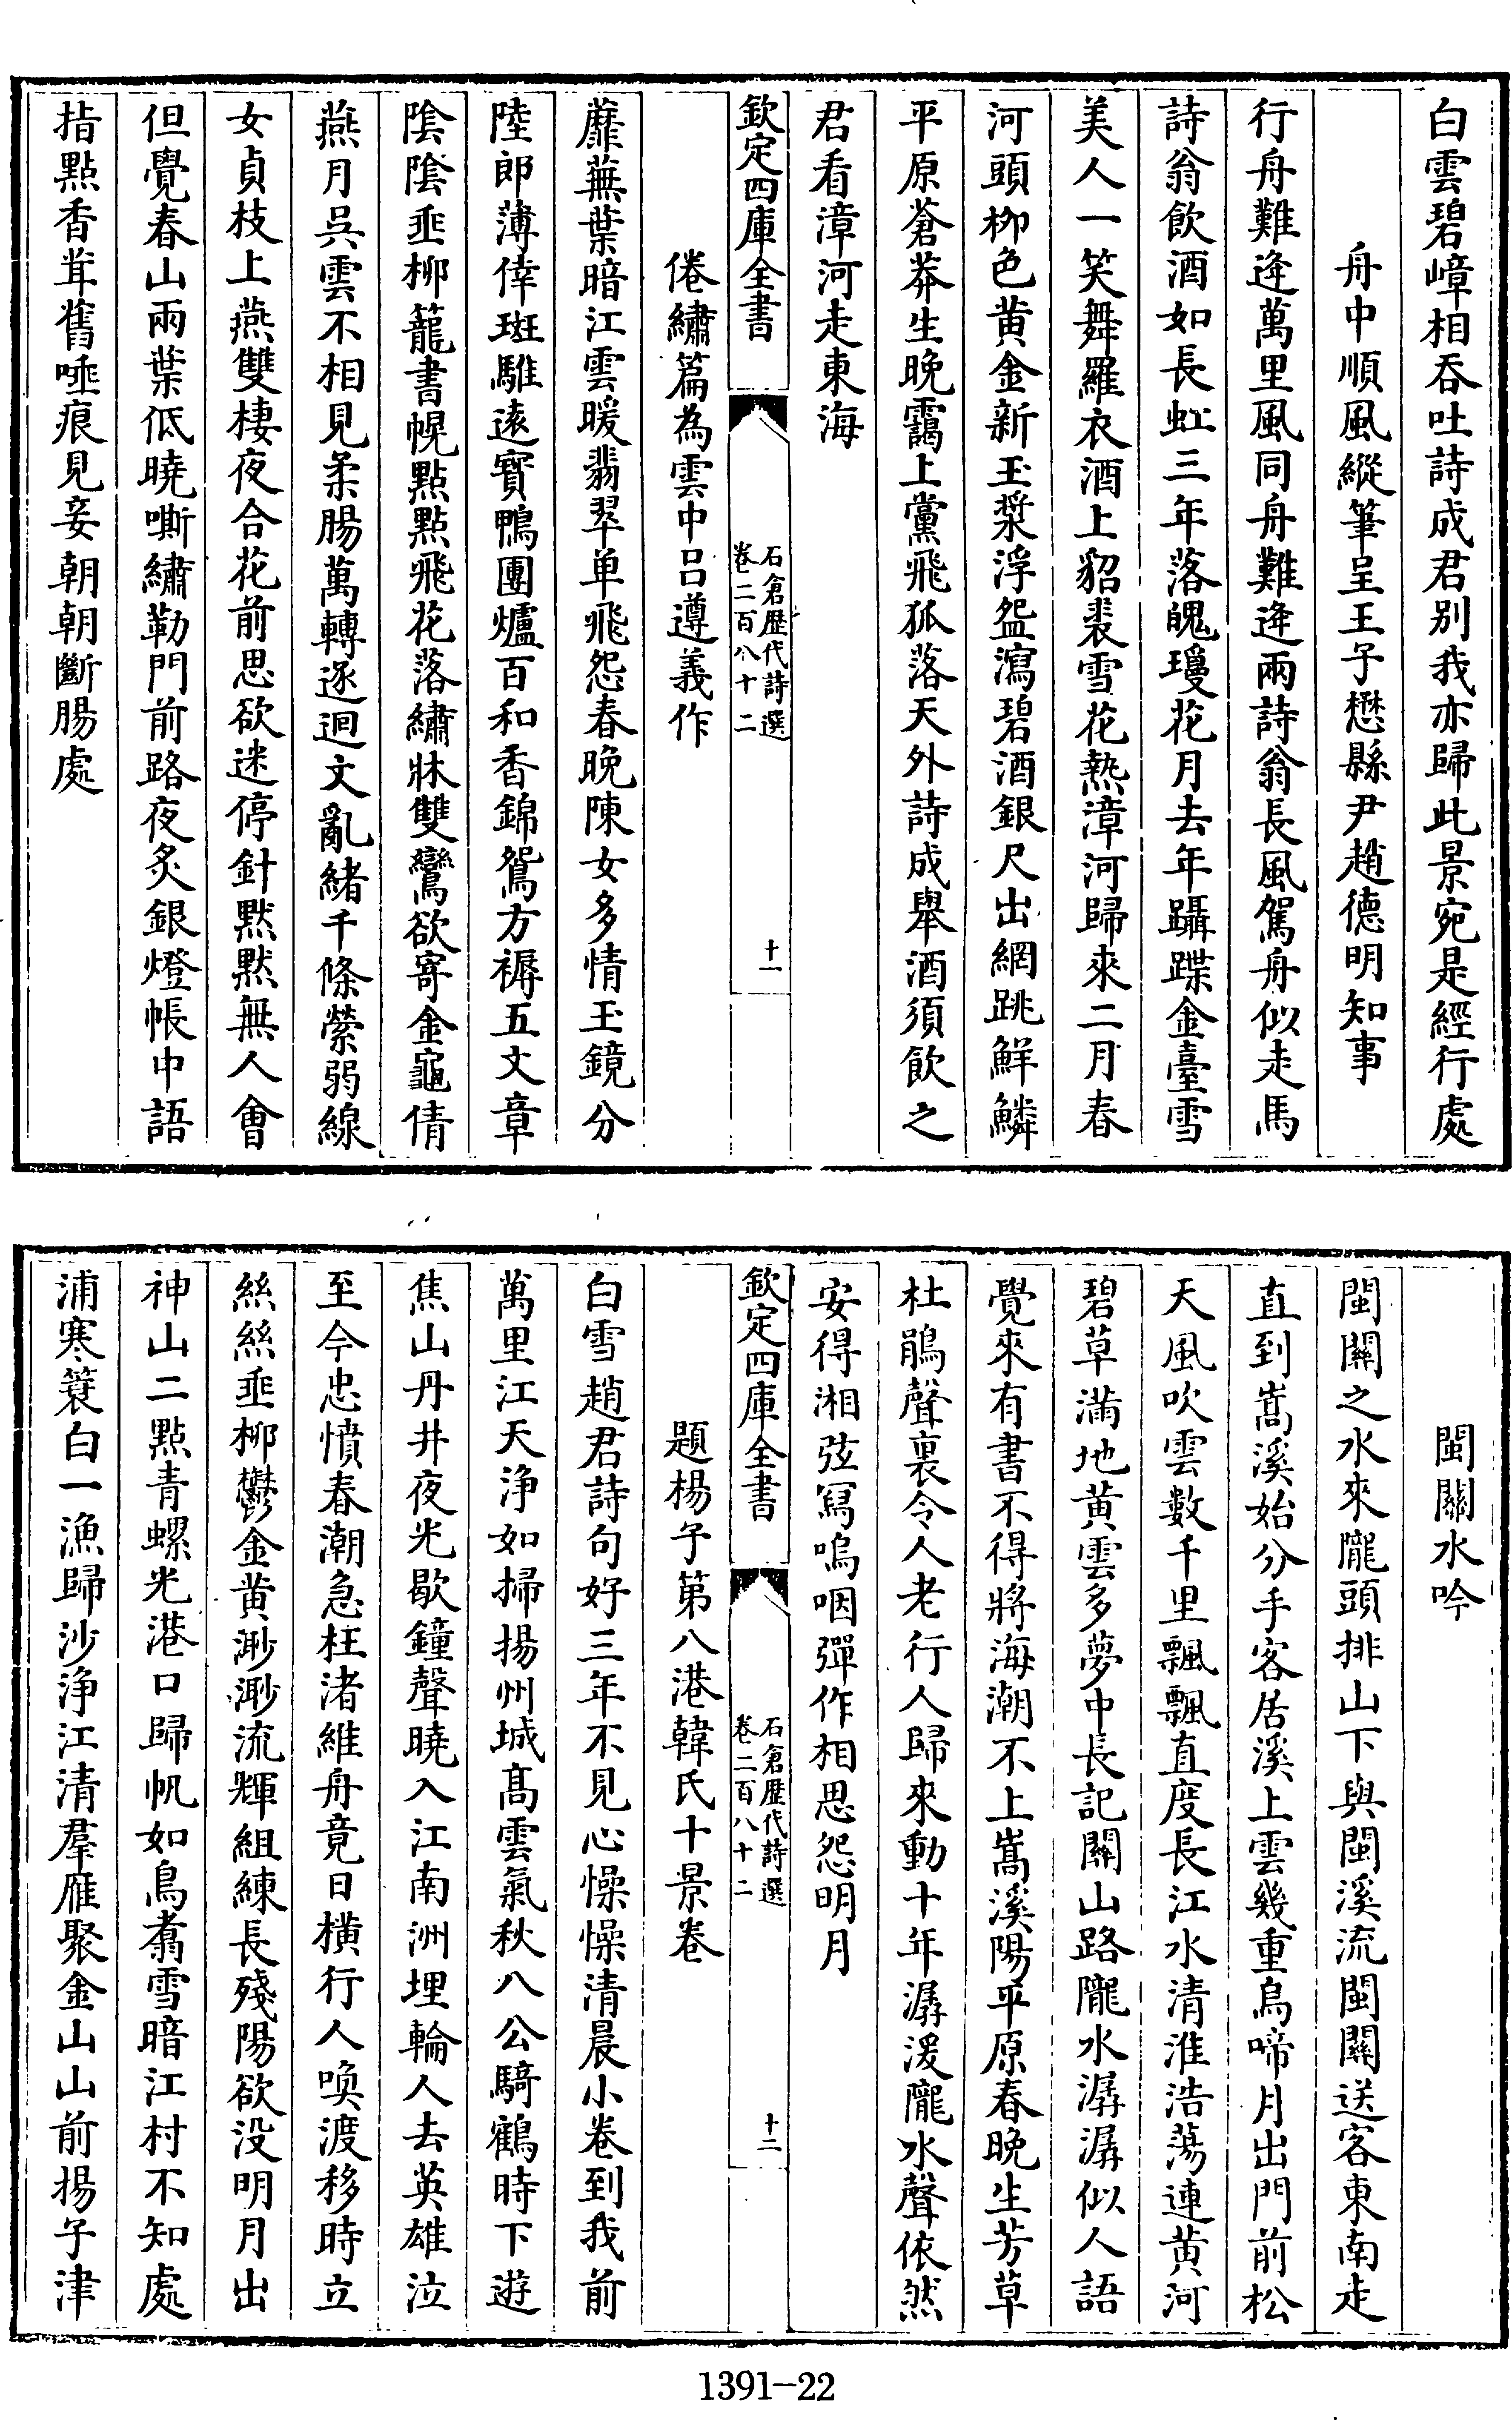 白雲碧嶂相吞吐詩成君别我亦歸此景宛是經行處
舟中順風縱筆呈王子懋縣尹趙德明知事
行舟難逢萬里風同舟難逢兩詩翁長風駕舟似走馬
詩翁飲酒如長虹三年落魄瓊花月去年躡蹀金臺雪
美人一笑舞羅衣酒上貂裘雪花熱漳河歸來二月春
河頭栁色黄金新玉漿浮盌瀉碧酒銀尺出網跳鮮鱗
平原蒼莽生晚靄上黨飛狐落天外詩成舉酒須飲之
君看漳河走東海
欽定四庫全書
石倉歴代詩選
卷二百八十二
十一
倦繡篇為雲中吕遵義作
蘼蕪葉暗江雲暖翡翠单飛怨春晚陳女多情玉鏡分
陸郎薄倖斑騅逺寳鴨團爐百和香錦鴛方褥五文章
陰陰垂柳籠書幌點點飛花落繡牀雙鸞欲寄金龜倩
燕月呉雲不相見柔腸萬轉逐迴文亂緒千條縈弱線
女貞枝上燕雙棲夜合花前思欲迷停針黙黙無人會
但覺春山兩葉低曉嘶繡勒門前路夜炙銀燈帳中語
指點香茸舊唾痕見妾朝朝斷腸處
閩關水吟
閩關之水來隴頭排山下與閩溪流閩關送客東南走
直到嵩溪始分手客居溪上雲幾重烏啼月出門前松
天風吹雲數千里飄飄直度長江水清淮浩蕩連黄河
碧草滿地黄雲多夢中長記關山路隴水潺潺似人語
覺來有書不得將海潮不上嵩溪陽平原春晚生芳草
杜鵑聲裏令人老行人歸來動十年潺湲隴水聲依然
安得湘弦冩嗚咽彈作相思怨明月
欽定四庫全書
石倉歴代詩選
卷二百八十二
十二
題楊子第八港韓氏十景卷
白雪趙君詩句好三年不見心懆懆清晨小卷到我前
萬里江天浄如掃揚州城髙雲氣秋八公騎鶴時下遊
焦山丹井夜光歇鐘聲曉入江南洲埋輪人去英雄泣
至今忠憤春潮急枉渚維舟竟日横行人喚渡移時立
絲絲垂柳鬱金黄渺渺流輝組練長殘陽欲没明月出
神山二點青螺光港口歸帆如鳥翥雪暗江村不知處
浦寒蓑白一漁歸沙浄江清羣雁聚金山山前揚子津
1391-22